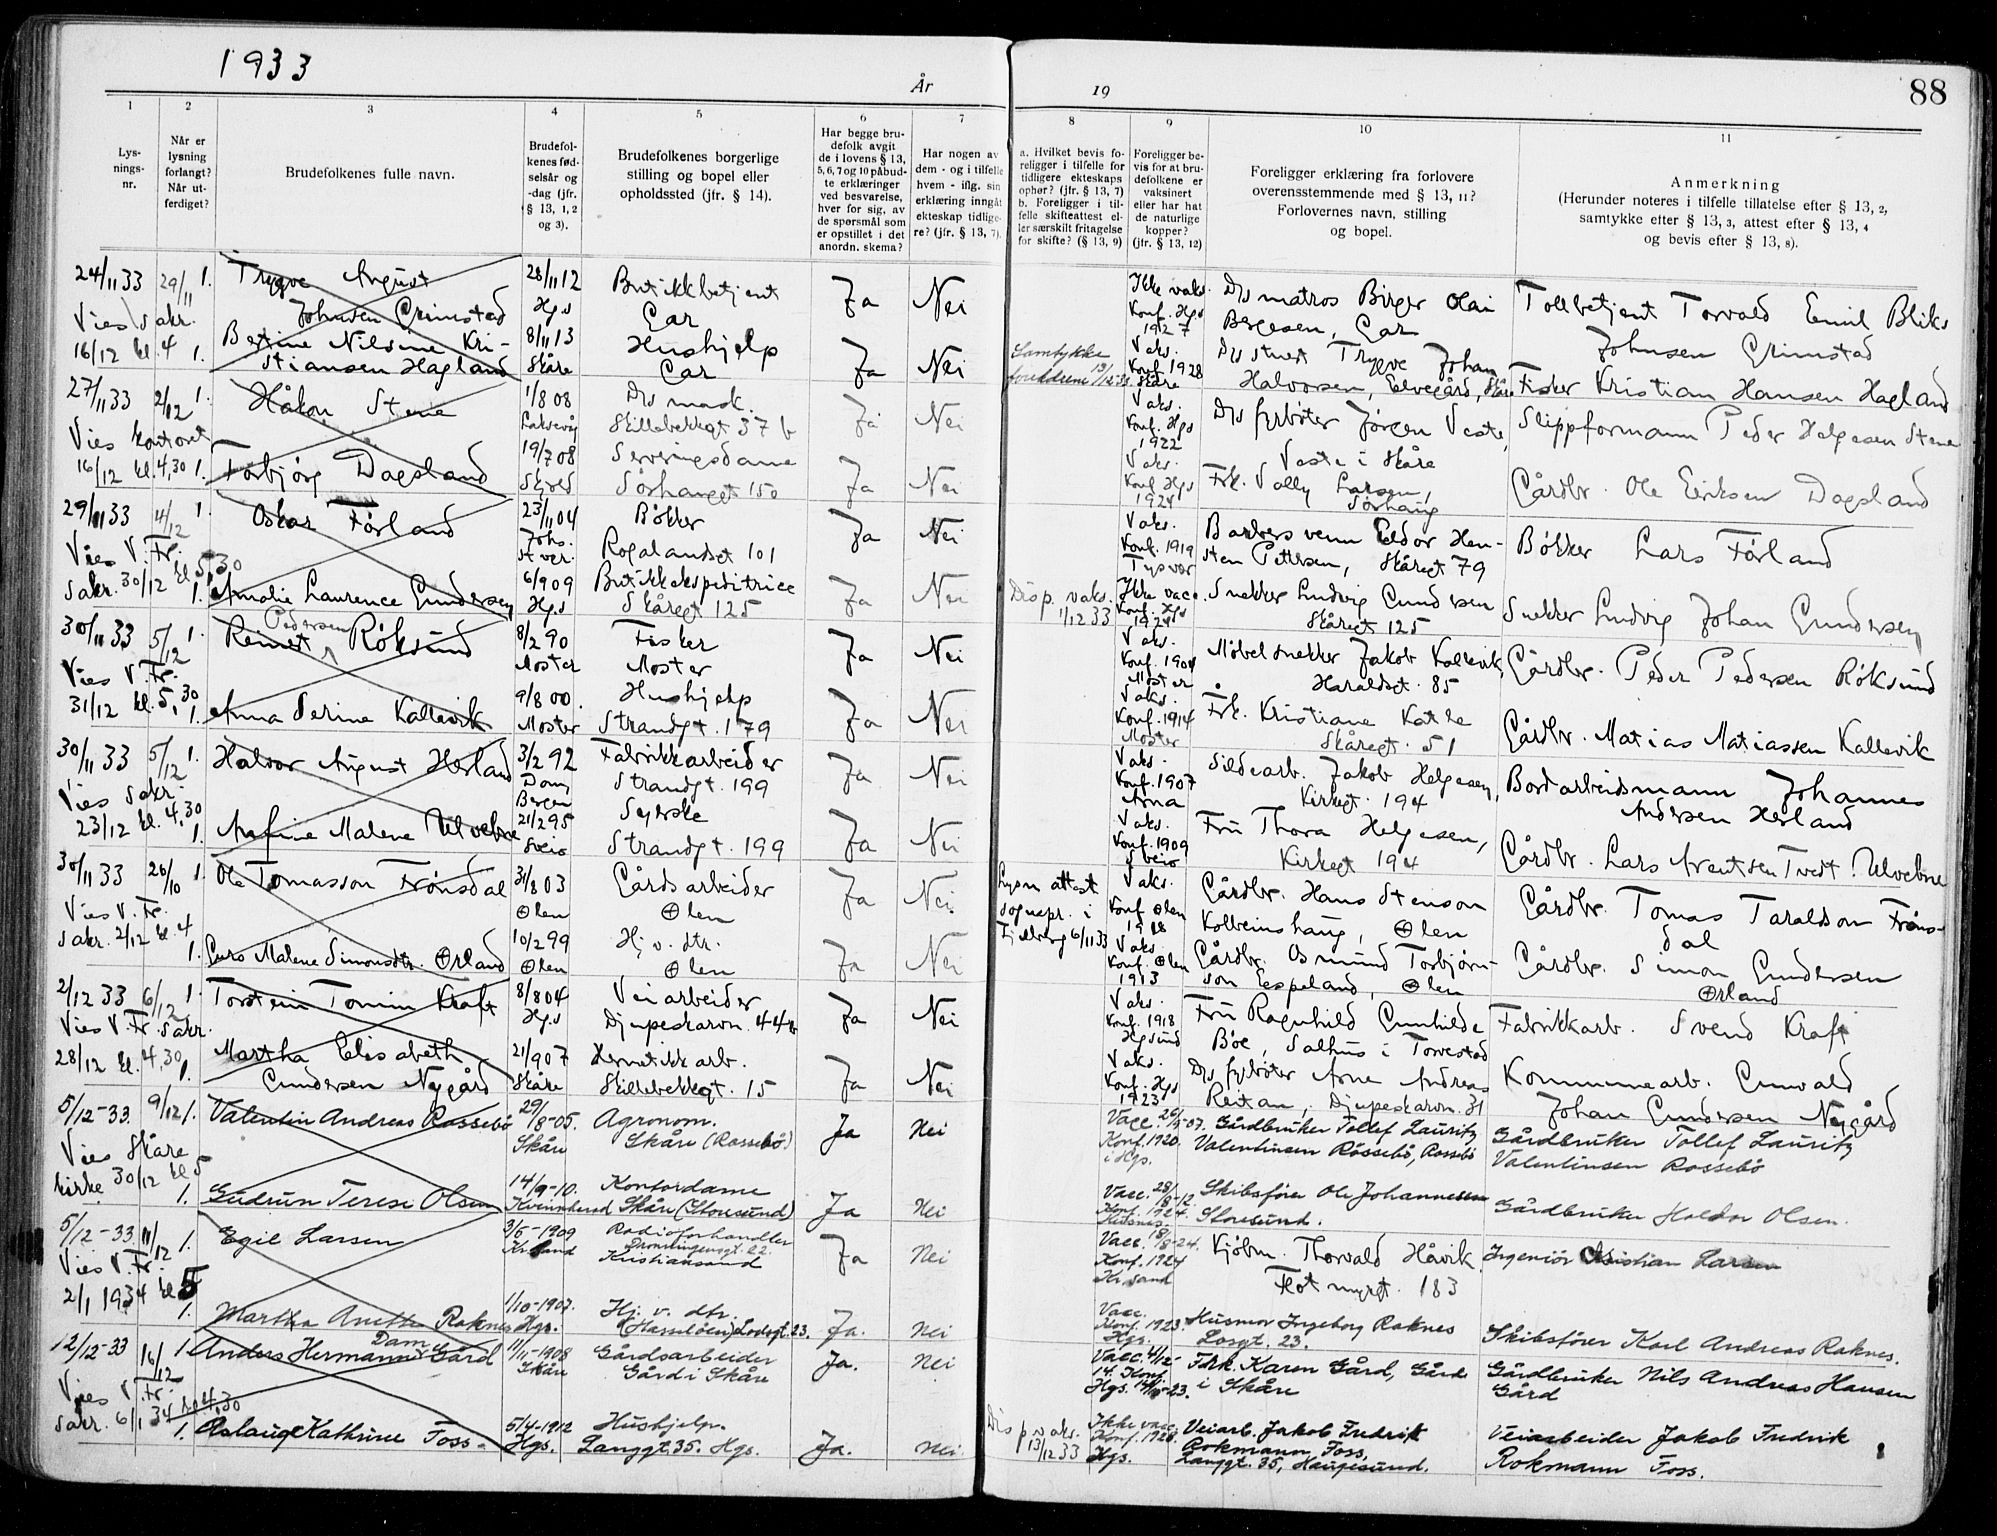 1933
År
19
88
1
2
3
4
5
6
7
8
9
10
11
Lys-
nings-
nr.
Når er
lysning
forlangt?
Når ut-
ferdiget?
Brudefolkenes fulle navn.
Brudefol-
kenes fød-
selsår og
-dag (jfr.
§ 13, 1, 2
og 3).
Brudefolkenes borgerlige
stilling og bopel eller
opholdssted (jfr. § 14).
Har begge bru-
defolk avgit
de i lovens § 13,
5, 6, 7 og 10 påbud-
te erklæringer
ved besvarelse,
hver for sig, av
de spørsmål som
er opstillet i det
anordn. skema?
Har nogen av
dem - og i tilfelle
hvem - iflg. sin
erklæring inngåt
ekteskap tidlige-
re? (jfr. § 13, 7).
a. Hvilket bevis fo-
religger i tilfelle for
tidligere ekteskaps
ophør? (jfr. § 13, 7)
b. Foreligger i til-
felle skifteattest el-
ler særskilt fritagelse
for skifte? (§ 13, 9)
Foreligger be-
vis for at bru-
defolkene er
vaksinert
eller har hat
de naturlige
kopper?
(jfr. § 13, 12)
Foreligger erklæring fra forlovere
overensstemmende med § 13, 11?
Forlovernes navn, stilling
og bopel.
Anmerkning
(Herunder noteres i tilfelle tillatelse efter § 13, 2,
samtykke efter § 13, 3, attest efter § 13, 4
og bevis efter § 13, 8).
24/11 33 29/11 1. Trygve August 28/11 12 Butikkbetjent Ja Nei Ikke vaks. Ds matros Birger Olai Tollbetjent Torvald Emil Bliks
Vies sakr. Johnsen Grimstad Hgs Gar Konf. Hgs 1927 Bergesen, Gar Johnsen Grimstad
16/12 kl. 4 1. Bertine Nilsine Kri- 8/11 13 Hushjelp Ja Nei Samtykke Vaks. Ds stuert Trygve Johan
stiansen Hagland Skåre Gar foreldrene 13/12 33 Konf. 1928 Skåre Halvorsen, Elvegård, Skåre Fisker Kristian Hansen Hagland
27/11 33 2/12 1. Håkon Stene 1/8 08 Ds mask. Ja Nei Vaks. Ds fyrbøter Jørgen Veste, Slippformann Peder Helgesen Stene
Vies kontoret Laksevåg Skillebekkgt 37 b Konf. Hgs 1922 Veste i Skåre
16/12 kl. 4,30 1. Torbjørg Dagsland 19/7 08 Serveringsdame Ja Nei Vaks. Frk. Vally Larsen, Gårdbr. Ole Eriksen Dagsland
Skjold Sørhauggt 150 Konf Hgs 1924 Sørhaug
29/11 33 4/12 1. Oskar Førland 23/11 04 Bøkker Ja Nei Vaks. Barbersvenn Eldor Hen- Bøkker Lars Førland
Vies V. Fr. Rogalandsgt 101 Konf. 1919 Tysvær sten Pettersen, Skåregt 79
sakr. 30/12 kl 5,30 1. Amalie Laurence Gundersen 6/9 09 Butikkekspeditrice Ja Nei Disp. vaks. Ikke vacc. Snekker Ludvig Gundersen Snekker Ludvig Johan Gundersen
Hgs Skåregt 125 1/12 33 Konf. Hgs 1924 Skåregt 125
30/11 33 5/12 1. Reinert Pedersen Røksund 8/2 90 Fisker Ja Nei Vaks. Møbelsnekker Jakob Kallevik, Gårdbr. Peder Pedersen Røksund
Vies V. Fr. Moster Moster Konf. 1904 Moster Haraldsgt. 85
31/12 kl. 5,30 1. Anna Serine Kallevik 9/8 00. Hushjelp Ja Nei Vaks. Frk. Kristiane
Moster Strandgt. 179 Konf. 1914 Moster Skåregt. 51 Gårdbr. Matias Matiassen Kallevik
30/11 33 5/12 1. Halvor August Herland 3/2 92 Fabrikkarbeider Ja Nei Vaks. Sildearb. Jakob Helgesen, Bordarbeidsmann Johannes
Vies sakr. Dom, Bergen Strandgt. 199 Konf. 1907 Arna Kirkegt. 194 Andersen Herland
23/12 kl. 4,30 1. Anfine Malene Ulvebne 21/2 95 Syerske Ja Nei Vaks. Fru Thora Helgesen,
Sveio Strandgt. 199 Konf. 1909 Sveio Kirkegt 194 Gårdbr. Lars Arentsen Tvedt Ulvebne
30/11 33 26/10 1. Ole Tomasson Frønsdal 31/8 03 Gårdsarbeider Ja Nei Lysn attest Vaks. Gårdbr. Hans Stenson Gårdbr. Tomas Taraldson Frøns-
Vies V. Fr. Ølen Ølen sognepr. i Konf Ølen 1918 Kolbeinshaug, Ølen dal
sakr. 2/12 kl 4 1. Guro Malene Simonsdtr. Ørland 10/2 99 Hj. v. dtr. Ja Nei Fjelberg 6/11 33 Vaks. Gårdbr. Osmund Torbjørn- Gårdbr. Simon Gundersen
Ølen Ølen Konf. Ølen 1913 son Espeland, Ølen Ørland
2/12 33 6/12 1. Torstein Tomin Kraft 8/8 04 Veiarbeider Ja Nei Vaks. Fru Ragnhild Gunhilde Fabrikkarb. Svend Kraft
Vies V. Fr. sakr. Hgs Djupeskarvn. 44 Konf. 1918 Hgsund Bøe, Salhus i Torvestad
28/12 kl. 4,30 1. Martha Elisabeth 21/9 07 Hermetikkarb. Ja Nei Vaks. Ds fyrbøter Arne Andreas Kommunearb. Gunvald
Gundersen Nygård Skåre Skillebekkgt. 15 Konf. Hgs 1923 Reitan, Djupeskarvn. 31 Johan Gundersen Nygård
5/12-33. 9/12 1. Valentin Andreas Rossebø 29/8-05. Agronom. Ja Nei Vacc. 26/9-07. Gårdbruker Tollef Lauritz Gårdbruker Tollef Lauritz
Vies Skåre Skåre Skåre (Rossebø) Konf. 1920. i Hgs. Valentinsen Røssebø, Rossebø Valentinsen Rossebø
kirke 30/12 kl 5 1. Gudrun Terese Olsen 14/9-10. Kontordame Ja Nei Vacc. 28/8-12 Skibsfører Ole Johannesen Gårdbruker Haldor Olsen.
Kvinnherad Skåre (Storesund) Konf. 1924. Storesund.
5/12-33 11/12 1. Egil Larsen 3/5-1909 Radioforhandler Ja Nei Vacc. 18/8-24. Kjøbm. Thorvald Håvik, Ingeniør Christian Larsen
Vies V. Fr. Kr.sand Dronningensgt. 22. Kristiansand Konf. 1924 Kr.sand Flotmyrgt. 183
2/1 1934 kl 5 1. Martha Anette Raknes 1/10-1907. Hj. v. dtr. Ja. Nei Vacc. Husmor Ingeborg Raknes Skibsfører Karl Andreas Raknes.
Hgs. (Hasseløen) Losgt. 23. Konf. 1923. Hgs. Losgt. 23.
12/12-33 16/12 1. Anders Hermann Dam Gård 11/11-1908 Gårdsarbeider Ja. Nei Vacc. 4/12- Frk. Karen Gård, Gård Gårdbruker Nils Andreas Hansen
Vies V. Fr. Skåre Gård i Skåre 14. Konf. Hgs. 14/10-23. i Skåre Gård
sakr. 6/1 34 kl. 4,30 1. Aslaug Kathrine Foss. 5/4-1912 Hushjelp. Ja. Nei Disp. vaks. Ikke vacc. Veiarb. Jakob Fredrik Veiarbeider Jakob Fredrik
Hgs. Langgt. 35. Hgs. 13/12 33 Hgs. Rokmann Foss, Rokmann Foss.
Langgt. 35, Haugesund.